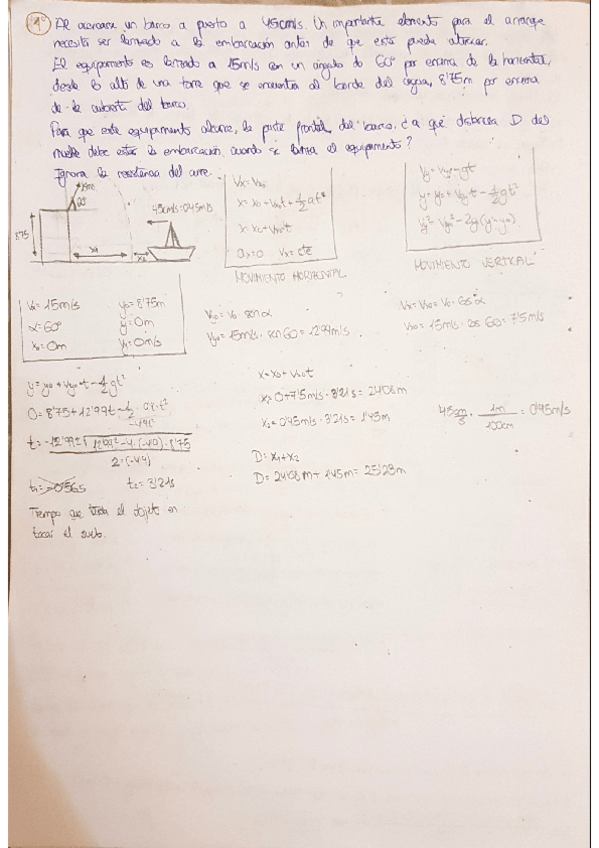 1º Al acercarse un barco a puerto a 45cm/s. Un importante elemento para el arranque
necesita ser lanzado a la embarcación antes de que esta pueda atracar.
El equipamento es lanzado a 15m/s con un ángulo de 60º por encima de la horizontal,
desde lo alto de una torre que se encuentra al borde del agua, 8'75m por encima
de la cubierta del barco.
Para que este equipamento alcance, la parte frontal del barco, ¿a qué distancia D del
muelle debe estar la embarcación cuando se lanza el equipamento?
Ignora la resistencia del aire.
15m/s
60º
8'75
45cm/s=0'45m/s
x₁
x₂
Vx=Vx₀
x=x₀+Vx₀t+½at²
x=x₀+Vx₀t
ax=0 Vx=cte
MOVIMIENTO HORIZONTAL
Vy=Vy₀-gt
y=y₀+Vy₀t-½gt²
Vy²=Vy₀²-2g(y-y₀)
MOVIMIENTO VERTICAL
V₀=15m/s y₀=8'75m
α=60º y=0m
x₀=0m
Vy₀=V₀ senα
Vy₀=15m/s·sen60=12'99m/s
Vx=Vx₀=V₀·cosα
Vx₀=15m/s·cos 60=7'5m/s
y=y₀+Vy₀t-½gt²
0=8'75+12'99t-½·9'8·t²
-4'9t²
t=-12'99±√12'99²-4·(-4'9)·8'75
2·(-4'9)
t₁=-0'56s t₂=3'21s
Tiempo que tarda el objeto en
tocar el suelo.
x=x₀+Vx₀t
x₁=0+7'5m/s·3'21s=24'08m
x₂=0'45m/s·3'21s=1'45m
D=x₁+x₂
D=24'08m+1'45m=25'23m
45cm/s·1m/100cm=0'45m/s